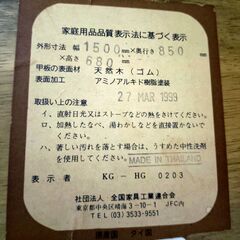 家庭用品品質表示法に基づく表示
外形寸法 幅1500mm×奥行き850
×高さ680mm
甲板の表面材 天然木(ゴム)
表面加工 アミノアルキド樹脂塗装
27 MAR 1999
取扱い上の注意
イ、直射日光又はストーブなどの熱をさけてください。
ロ、加熱したなべ、湯わかしなどを直接置かないでください。
ハ、著しい汚れを落とす場合は、うすめた中性洗剤を使用してください。
MADE IN THAILAND
表示者 KG-HG 0203
社団法人 全国家具工業連合会
東京都中央区晴海3-10-1 JFC内
TEL(03)3533-9551
原産国 タイ国